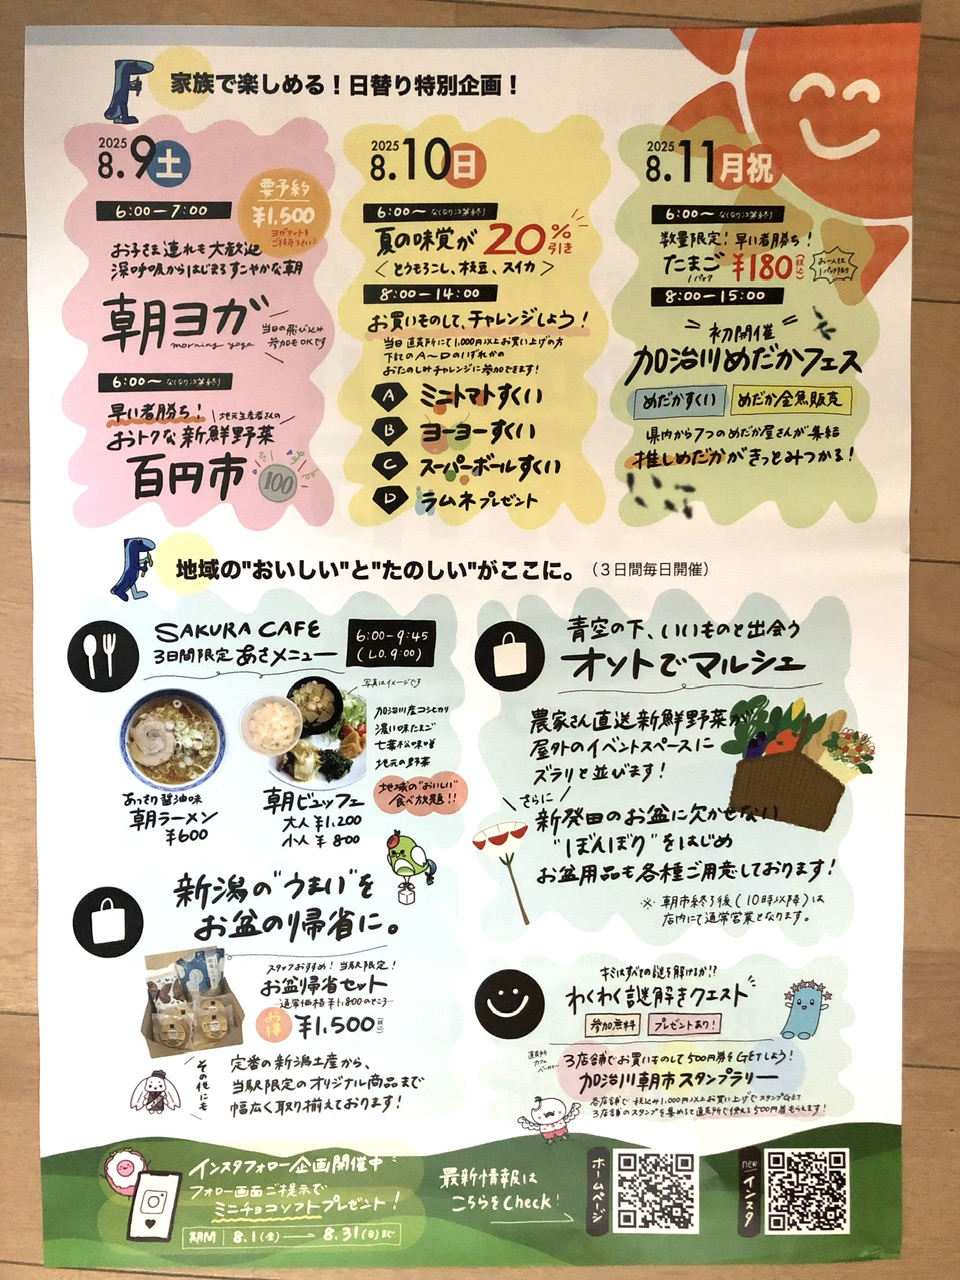 家族で楽しめる！日替り特別企画！
2025
8.9土
要予約
¥1,500
ヨガマットを
ご持参下さい！
6:00-7:00
お子さま連れも大歓迎
深呼吸からはじまるすこやかな朝
朝ヨガ
morning yoga
当日の飛び込み
参加もOKです
6:00〜 なくなり次第終了
早い者勝ち！
地元生産者さんの
おトクな新鮮野菜
百円市
100
2025
8.10日
6:00〜 なくなり次第終了
夏の味覚が20%引き
＜とうもろこし、枝豆、スイカ＞
8:00-14:00
お買いものして、チャレンジしよう！
当日直売所にて1,000円以上お買い上げの方
下記のA〜Dのいずれかの
おたのしみチャレンジに参加できます！
A ミニトマトすくい
B ヨーヨーすくい
C スーパーボールすくい
D ラムネプレゼント
2025
8.11月祝
6:00〜 なくなり次第終了
数量限定！早い者勝ち！
たまご ¥180(税込)
1パック
お一人さま
1パックまで
8:00-15:00
初開催
加治川めだかフェス
めだかすくい
めだか金魚販売
県内から7つのめだか屋さんが集結
推しめだかがきっとみつかる！
地域の"おいしい"と"たのしい"がここに。（3日間毎日開催）
SAKURA CAFE
3日間限定 あさメニュー
6:00-9:45
(L.O.9:00)
写真はイメージです
加治川産コシヒカリ
濃い味たまご
七葉松味噌
地元の野菜
地域の"おいしい"
食べ放題！！
あっさり醤油味
朝ラーメン
¥600
朝ビュッフェ
大人 ¥1,200
小人 ¥800
青空の下、いいものと出会う
オソトでマルシェ
農家さん直送新鮮野菜が
屋外のイベントスペースに
ズラリと並びます！
さらに
新発田のお盆に欠かせない
"ぼんぼり"をはじめ
お盆用品も各種ご用意しております！
※ 朝市終了後(10時以降)は
店内にて通常営業となります。
新潟の"うまい"を
お盆の帰省に。
スタッフおすすめ！当駅限定！
お盆帰省セット
通常価格¥1,800のところ
お得
¥1,500(税込)
その他にも
定番の新潟土産から、
当駅限定のオリジナル商品まで
幅広く取り揃えております！
キミはすべての謎を解けるか!?
わくわく謎解きクエスト
参加無料
プレゼントあり！
直売所
カフェ
ベーカリー
3店舗でお買いものして500円券をGetしよう！
加治川朝市スタンプラリー
各店舗で税込み1,000円以上お買い上げでスタンプGET
3店舗のスタンプを集めると直売所で使える500円券もらえます！
インスタフォロー企画開催中
フォロー画面ご提示で
ミニチョコソフトプレゼント！
期間 8.1(金)——8.31(日)まで
最新情報は
こちらをCheck！
ホームページ
new
インスタ